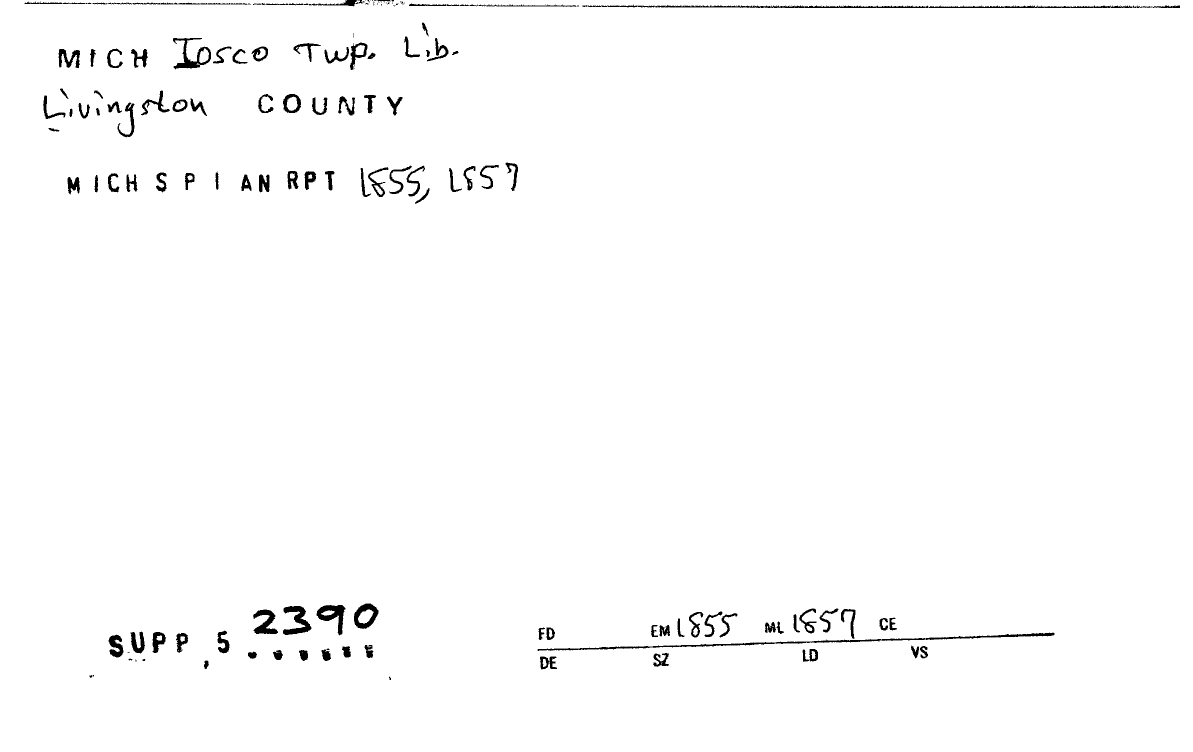 MICH Iosco Twp. Lib.
Livingston COUNTY
MICH S P I AN RPT 1855, 1857
SUPP, 5 2390
FD EM 1855 ML 1857 CE
DE SZ LD VS